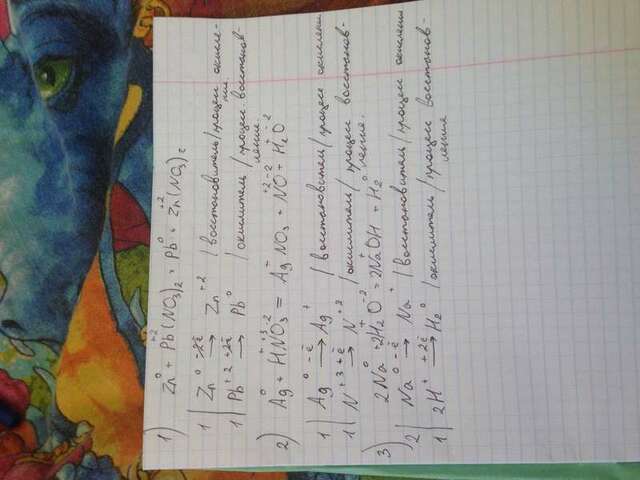 1) Zn⁰ + Pb⁺²(NO₃)₂ = Pb⁰ + Zn⁺²(NO₃)₂
1 | Zn⁰ -2ē → Zn⁺² | восстановитель/процесс окисле-
ния.
1 | Pb⁺² +2ē → Pb⁰ | окислитель/процесс восстанов-
ление
2) Ag⁰ + H⁺N⁺³O₃⁻² = Ag⁺NO₃ + N⁺²O⁻² + H₂⁺O⁻²
1 | Ag⁰ -ē → Ag⁺ | восстановитель/процесс окисления
1 | N⁺³ +ē → N⁺² | окислитель/процесс восстанов-
ление.
3) 2Na⁰ + 2H₂⁺O⁻² = 2Na⁺OH + H₂⁰
2 | Na⁰ -ē → Na⁺ | восстановитель/процесс окисления
1 | 2H⁺ +2ē → H₂⁰ | окислитель/процесс восстанов-
ления